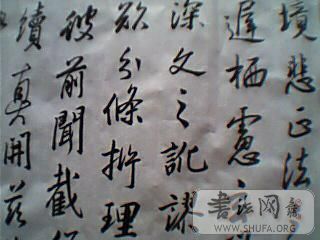 境悲正法
遲栖慮
深文之訛謬
欲分條析理
彼前聞截
續真開茲
书法网
WWW.SHUFA.ORG